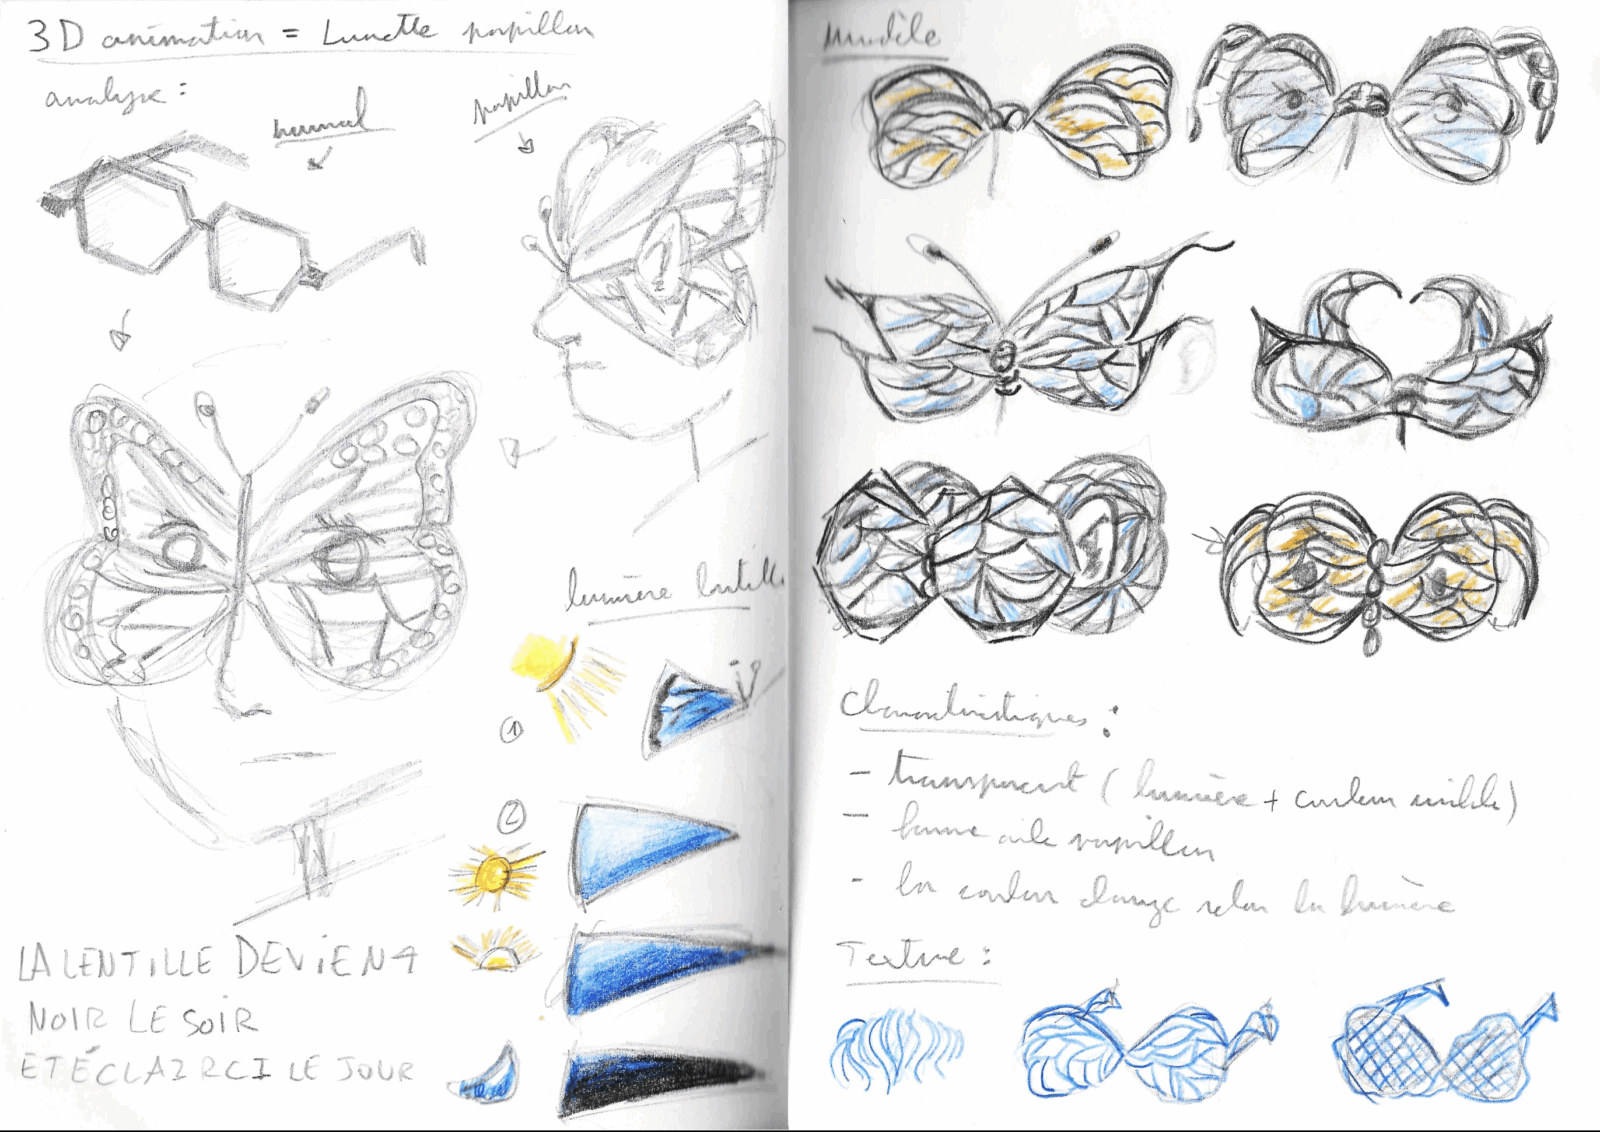 3D animation = Lunette papillon
analyse :
normal
papillon
lumière lentille
1
2
LA LENTILLE DEVIENT
NOIR LE SOIR
ET ÉCLAIRCI LE JOUR
modèle
Characteristiques :
- transparent ( lumière + couleur visible )
- forme aile papillon
- la couleur change selon la lumière
Texture :